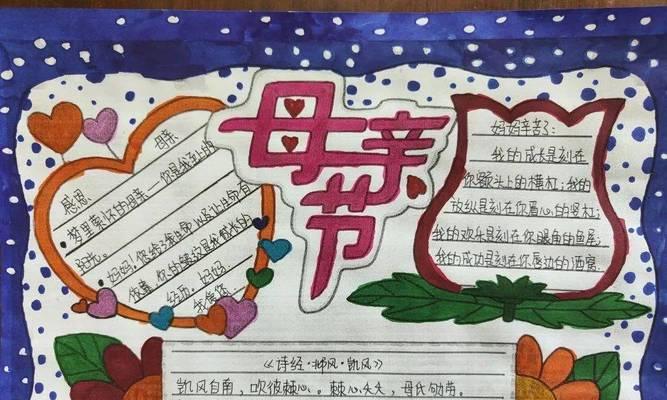 母亲节
感恩 母亲
梦里萦怀的母亲——你是我至上的
阳光。
妈妈!你给了我生命以及让生命有
依靠,你的
经历。妈妈
我爱您
妈妈辛苦了:
我的成长是刻在
你额头上的横杠;我的
放纵是刻在你眉心的竖杠;
我的欢乐是刻在你眼角的鱼尾;
我的成功是刻在你唇边的酒窝
《诗经·邶风·凯风》
凯风自南,吹彼棘心。棘心夭夭,母氏劬劳。